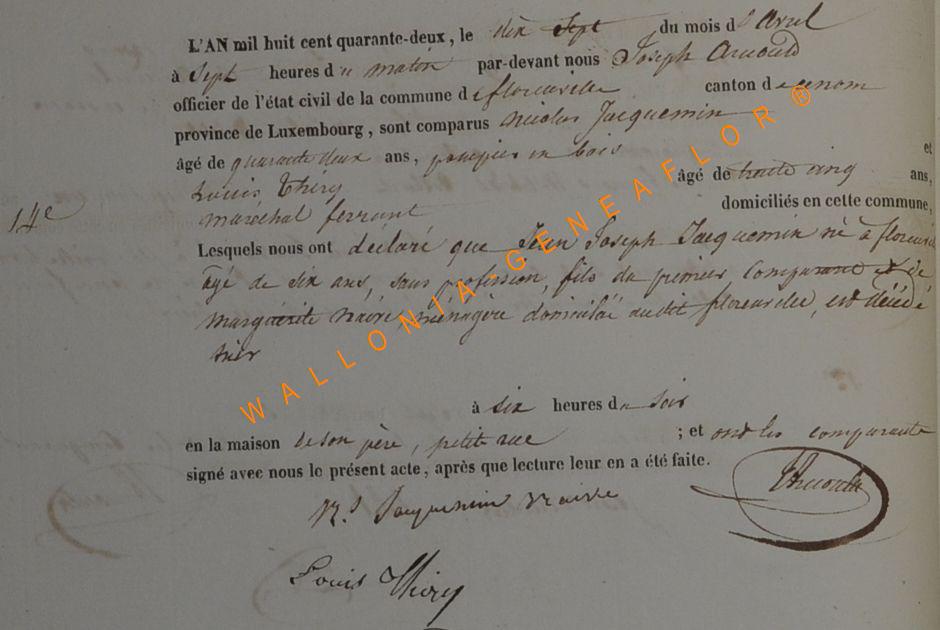 L'AN mil huit cent quarante-deux, le dix sept du mois d'avril
à sept heures du matin par-devant nous Joseph Arnould
officier de l'état civil de la commune de florenville canton de ce nom
province de Luxembourg, sont comparus Nicolas Jacquemin
âgé de quarante deux ans, pompier en bois et
Louis Thiry âgé de trente cinq ans,
maréchal ferrant domiciliés en cette commune,
14e
Lesquels nous ont déclaré que Jean Joseph Jacquemin né à florenville
âgé de six ans, sans profession, fils du premier comparant et de
Marguerite ménagère domiciliée audit florenville, est décédé
hier
à six heures du soir
en la maison de son père, petite rue ; et ont les comparants
signé avec nous le présent acte, après que lecture leur en a été faite.
Arnould
Ns Jacquemin
Louis Thiry
WALLONIA-GENEAFLOR ®